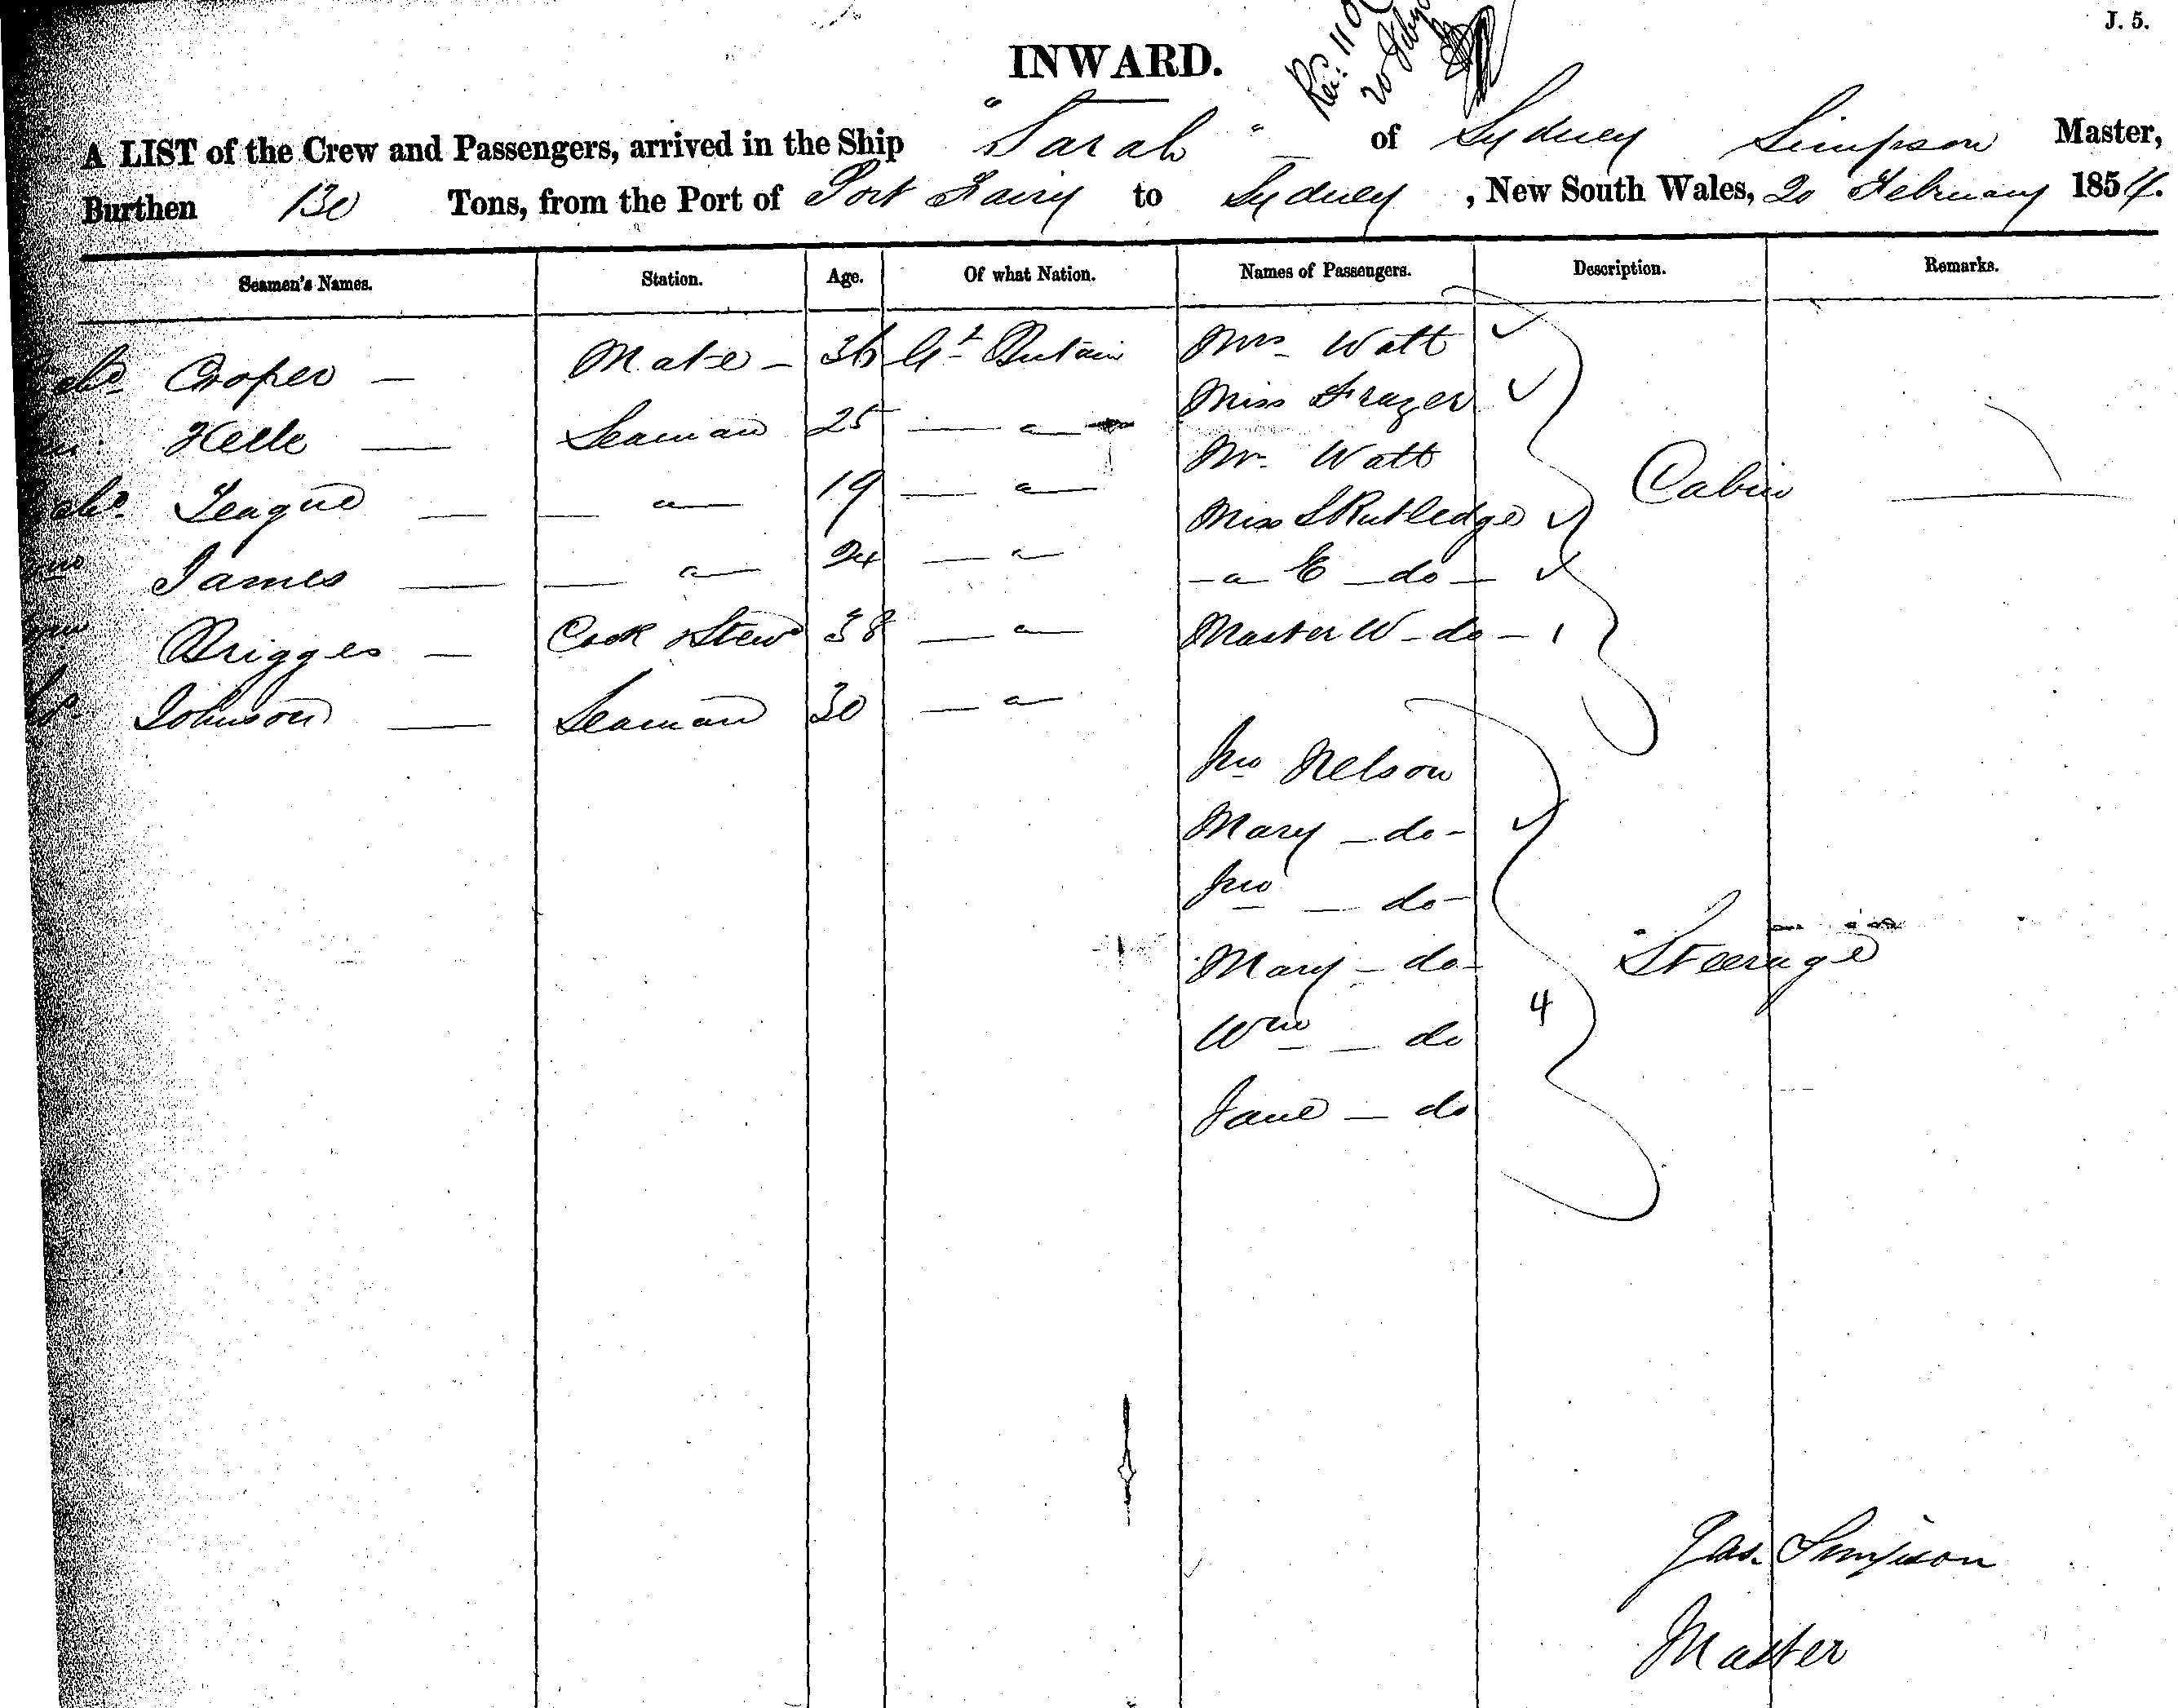 J. 5.
INWARD.
A LIST of the Crew and Passengers, arrived in the Ship "Sarah" of Sydney Simpson Master,
Burthen 130 Tons, from the Port of Port Fairy to Sydney, New South Wales, 20 February 1854.
Seamen's Names. Station. Age. Of what Nation. Names of Passengers. Description. Remarks.
Cooper — Mate — 36 Gt Britain Mrs Watt
Miss Frazer
Seaman 25 — " —
Mr. Watt
Cabin
League — — " — 19 — " —
Miss S Rutledge
James — — " — 24 — " —
— " E — do —
Brigges — Cook & Stewd 38 — " — Master W — do —
Johnson — Seaman 30 — " —
Jno Nelson
Mary — do —
Jno — do —
Mary — do —
Steerage
4
Wm — do
Jane — do
Jas. Simpson
Master